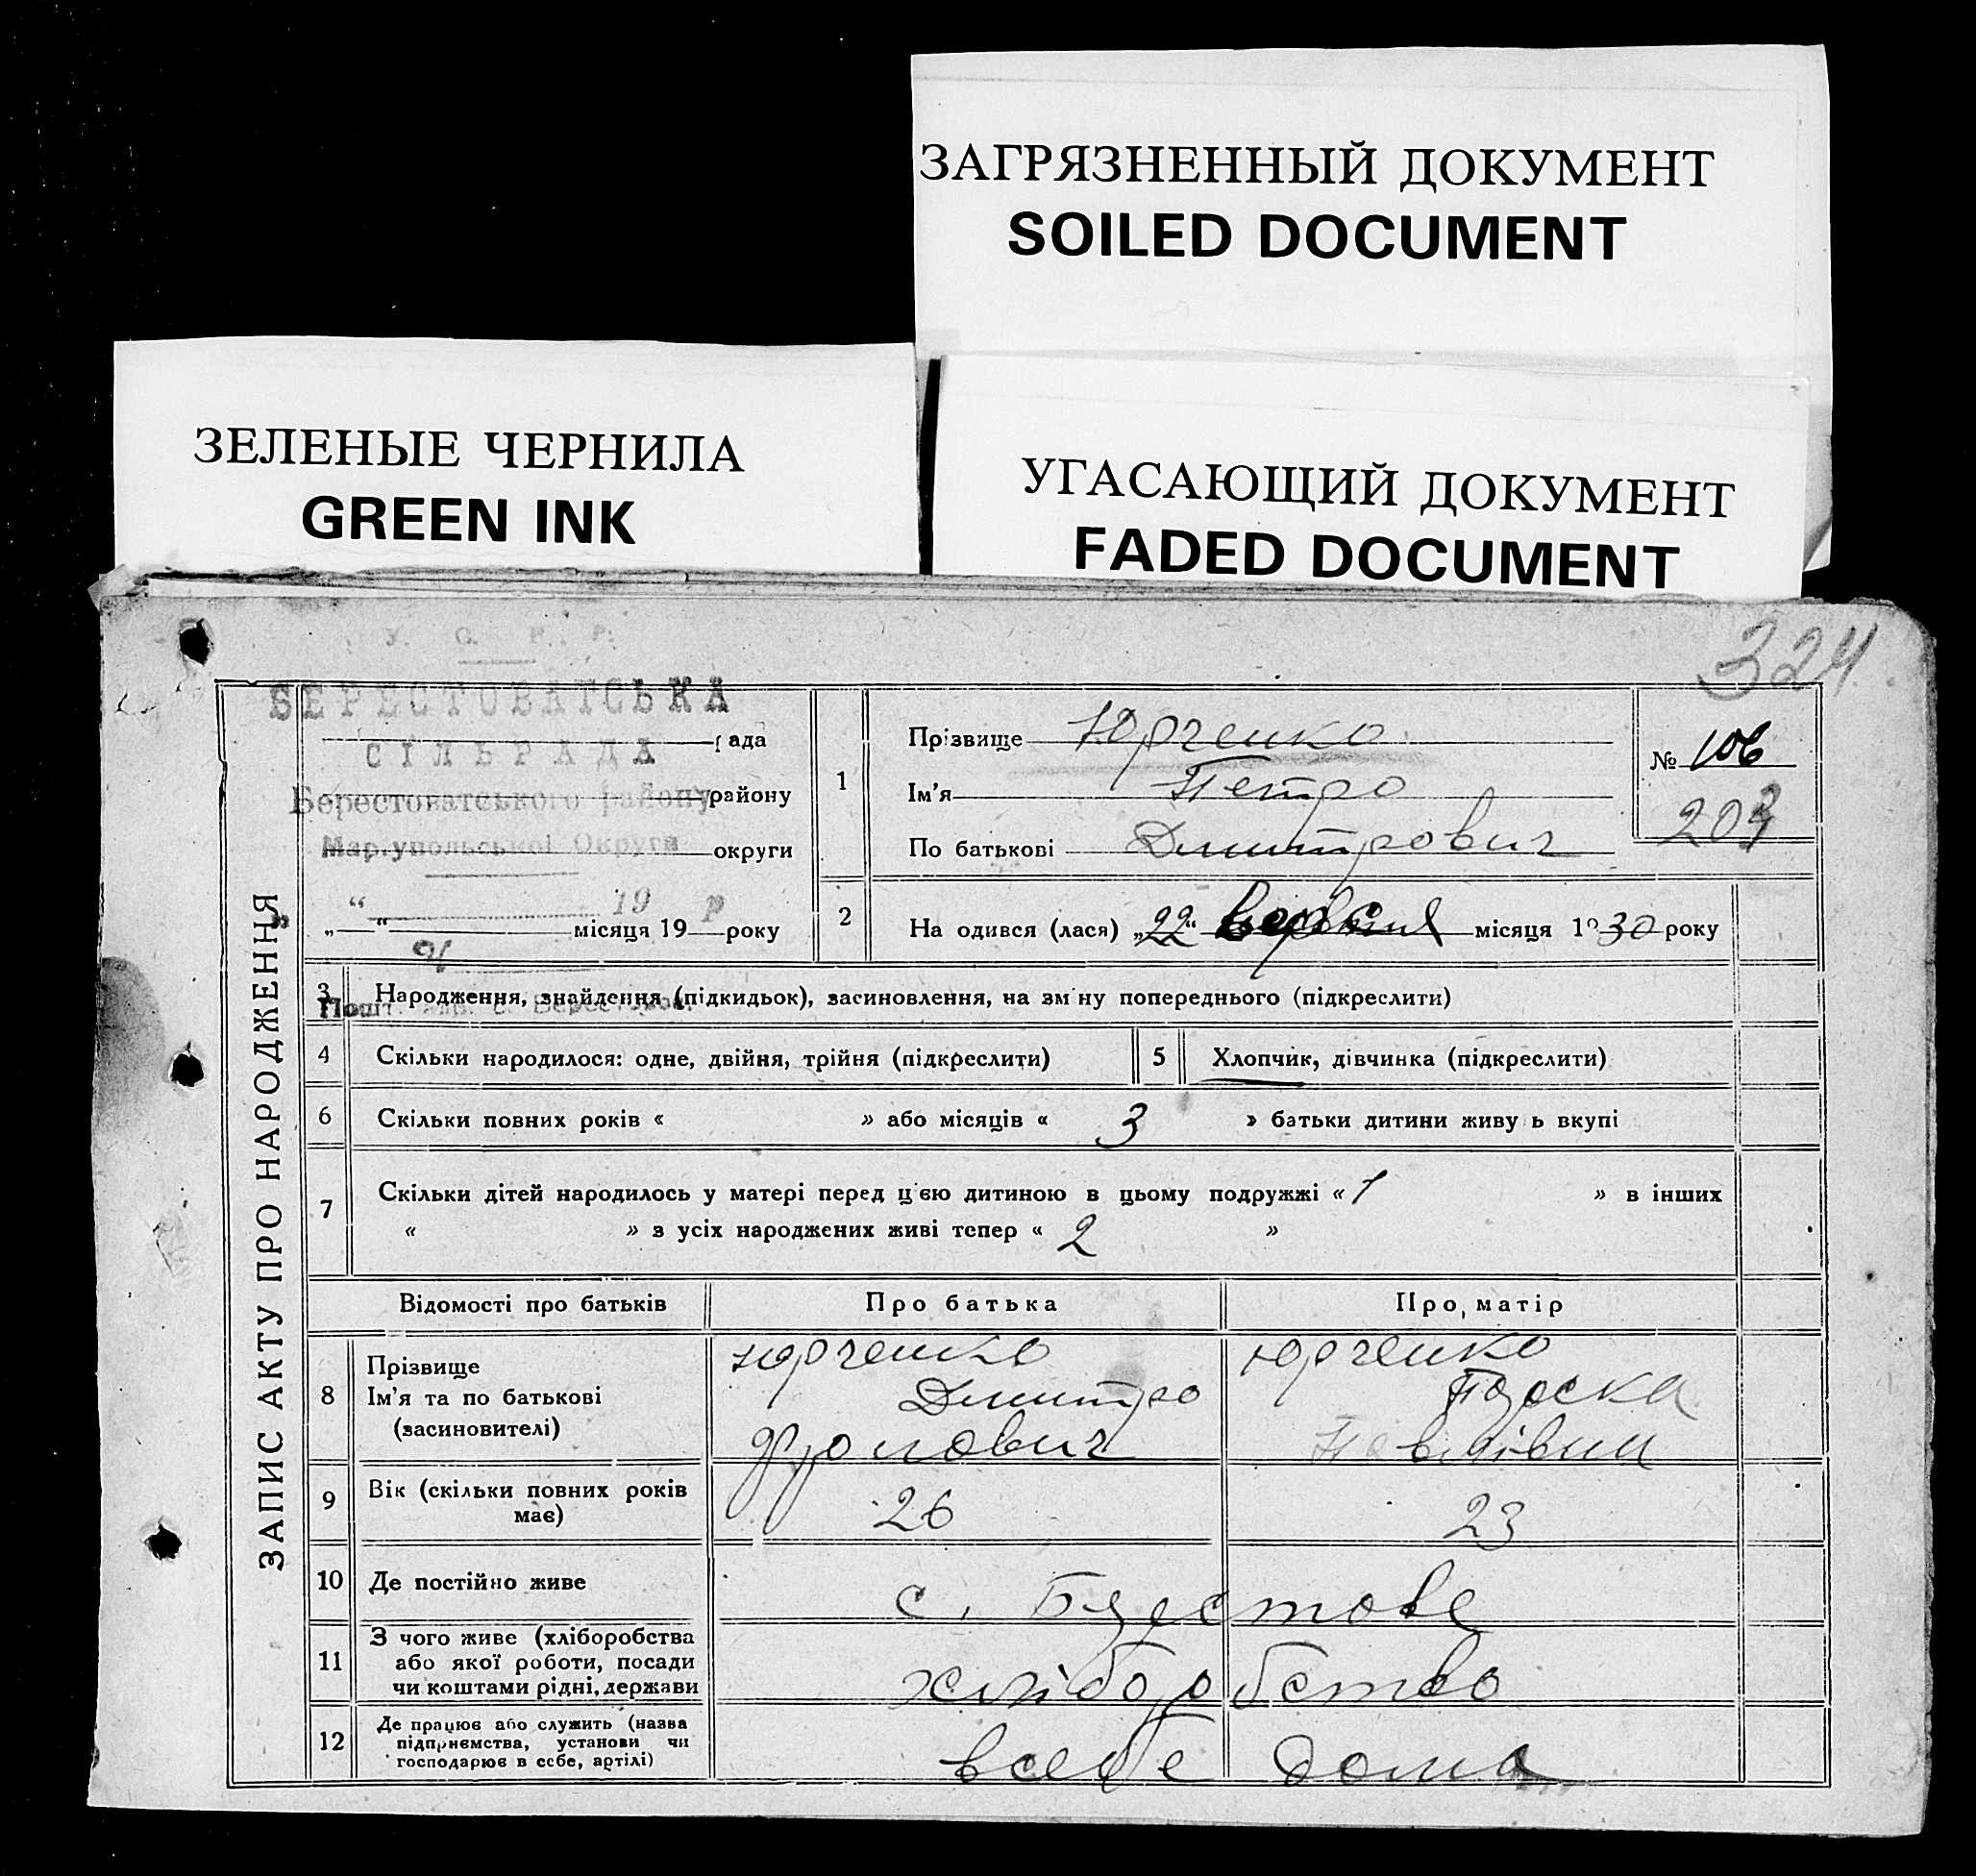 ЗАГРЯЗНЕННЫЙ ДОКУМЕНТ
SOILED DOCUMENT
ЗЕЛЕНЫЕ ЧЕРНИЛА
GREEN INK
УГАСАЮЩИЙ ДОКУМЕНТ
FADED DOCUMENT
324
У. С. Р. Р.
БЕРЕСТОВАТСЬКА
рада
СІЛЬРАДА
Берестоватського району
району
Маріупольської Округи
округи
" " 19 р
„ “ місяця 19 року
Пошт. адр. с. Берестове.
ЗАПИС АКТУ ПРО НАРОДЖЕННЯ
1
Прізвище Юрченко
Ім'я Петро
По батькові Дмитрович
№ 106
203
2
На одився (лася) „22“ вересня місяця 1930 року
3 Народження, знайдення (підкидьок), засиновлення, на зміну попереднього (підкреслити)
4 Скільки народилося: одне, двійня, трійня (підкреслити)
5 Хлопчик, дівчинка (підкреслити)
6 Скільки повних років « » або місяців « 3 » батьки дитини живу ь вкупі
7 Скільки дітей народилось у матері перед цією дитиною в цьому подружжі « 1 » в інших
« » з усіх народжених живі тепер « 2 »
Відомості про батьків Про батька Про матір
8 Прізвище
Ім'я та по батькові
(засиновителі)
Юрченко
Дмитро
Фролович
Юрченко
Параска
Павлівна
9 Вік (скільки повних років
має)
26
23
10 Де постійно живе
с. Берестове
11 З чого живе (хліборобства
або якої роботи, посади
чи коштами рідні, держави
хліборобство
12 Де працює або служить (назва
підприємства, установи чи
господарює в себе, артілі)
в себе дома